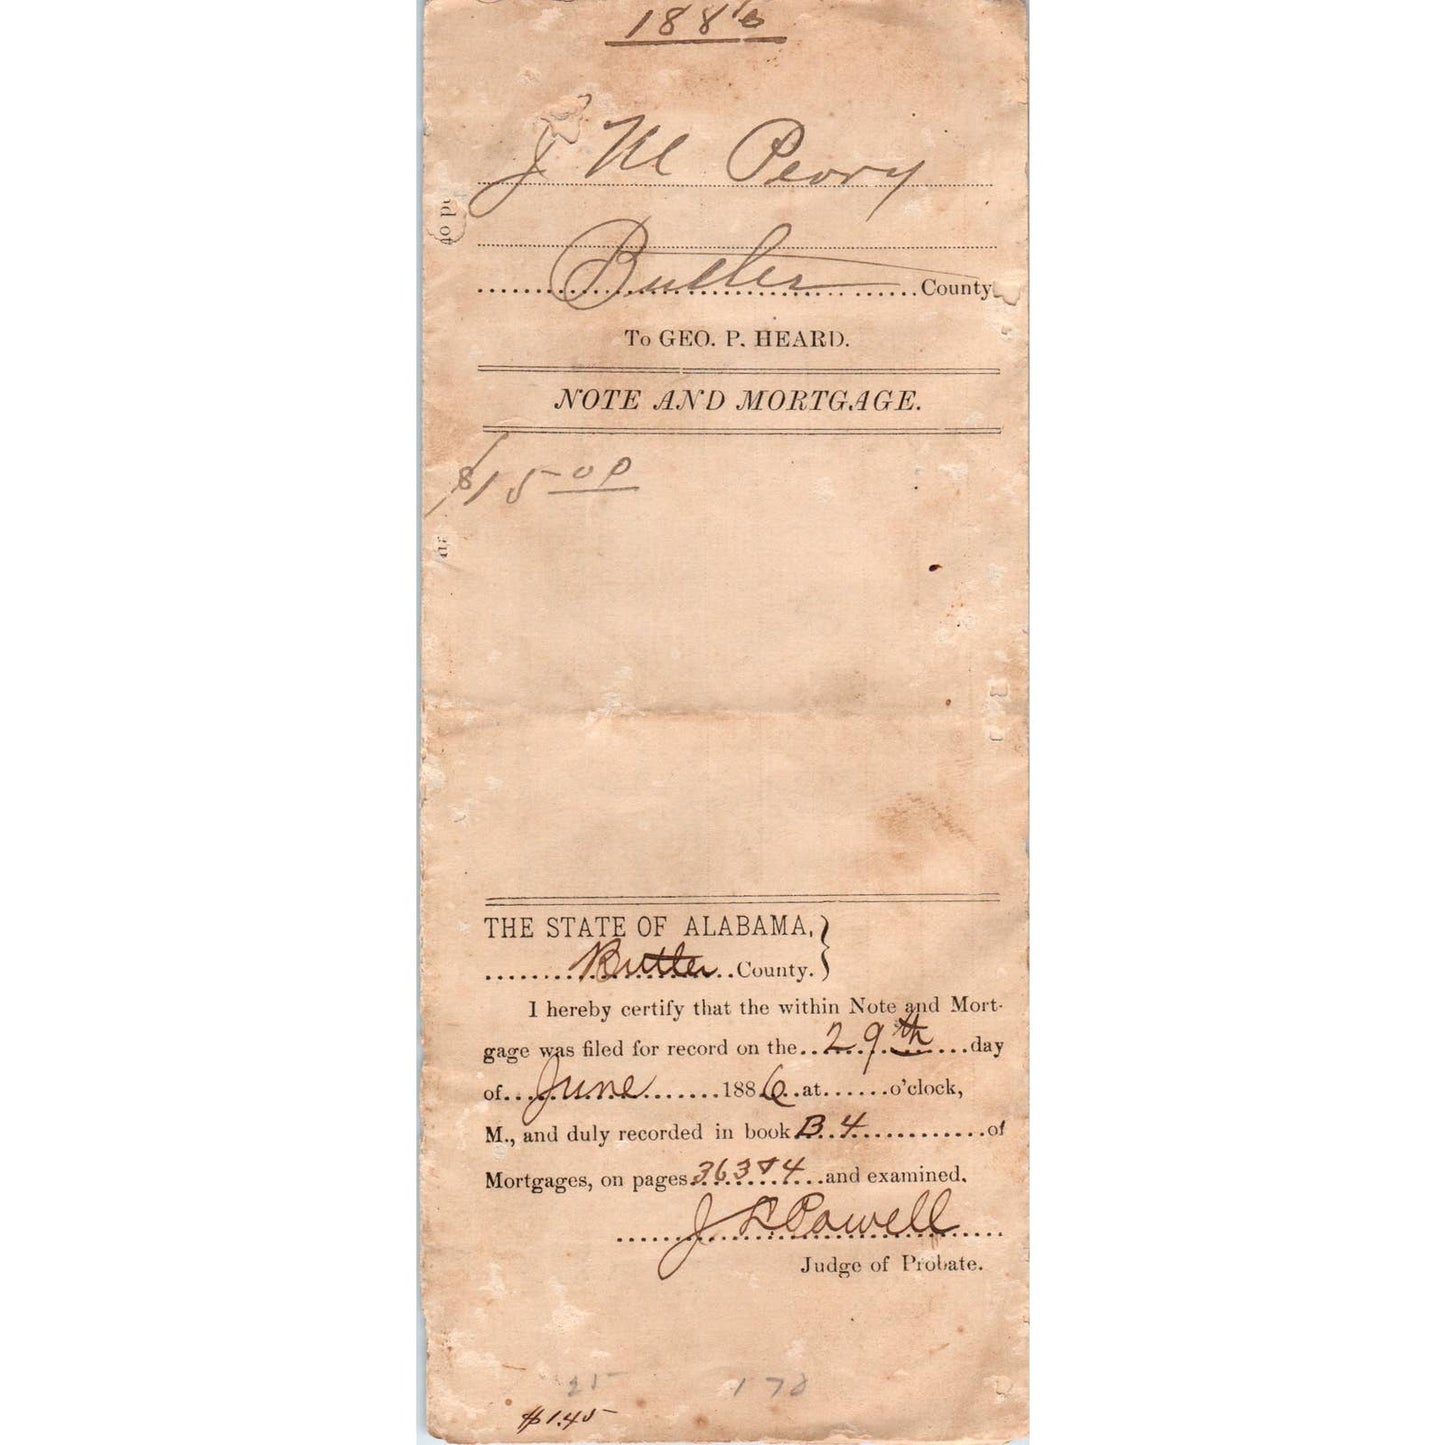 1886
J M Peory
Butler County
To GEO. P. HEARD.
NOTE AND MORTGAGE.
$15 00
THE STATE OF ALABAMA, }
Butler County. }
I hereby certify that the within Note and Mort-
gage was filed for record on the 29th day
of June 1886 at o'clock,
M., and duly recorded in book B. 4 of
Mortgages, on pages 363 & 4 and examined.
J L Powell
Judge of Probate.
25 178
$1.45